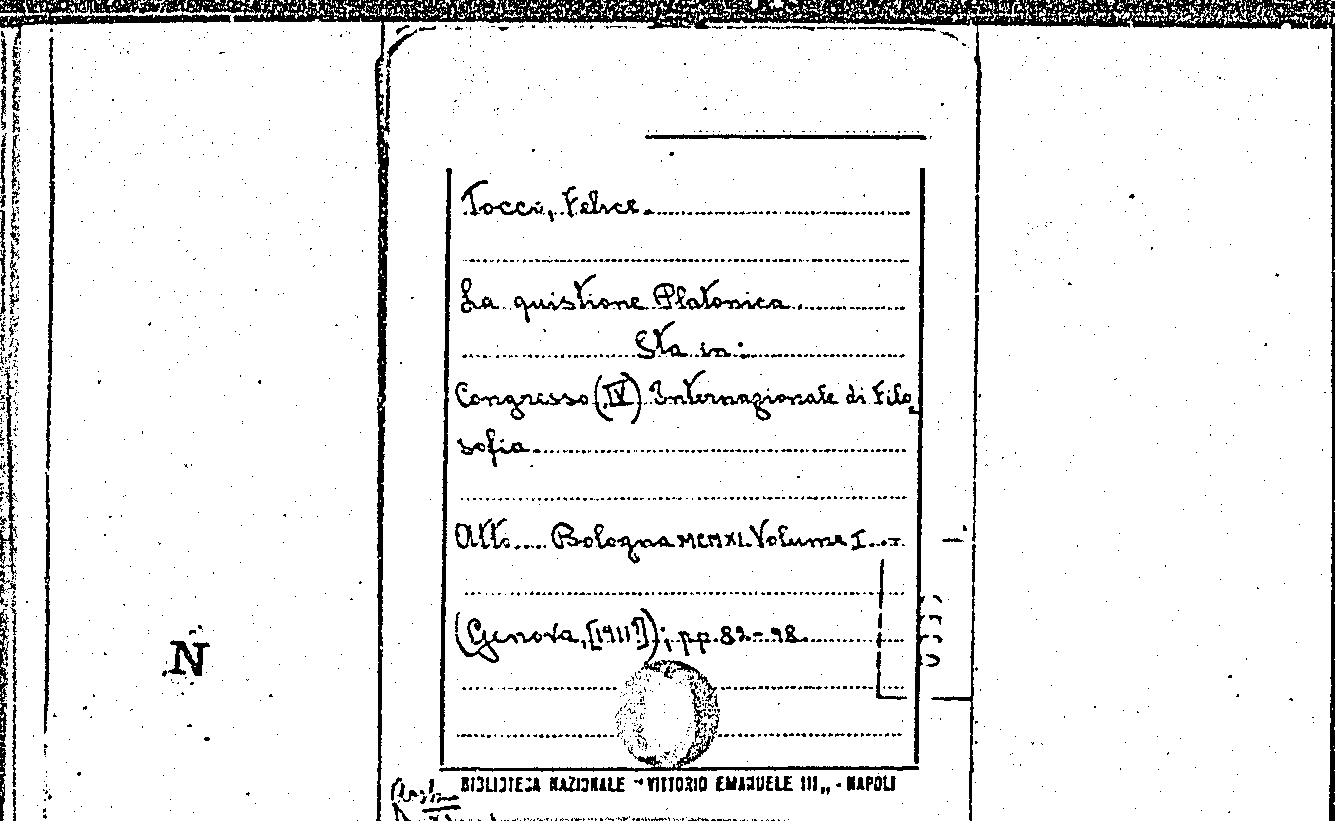 Tocci, Felice.
La quistione Platonica.
Sta in:
Congresso (IV) Internazionale di Filo-
sofia.
Atti.... Bologna MCMXI. Volume I...
(Genova, [1911?]); pp. 82-98.
N
BIBLIOTECA NAZIONALE "VITTORIO EMANUELE III„ - NAPOLI